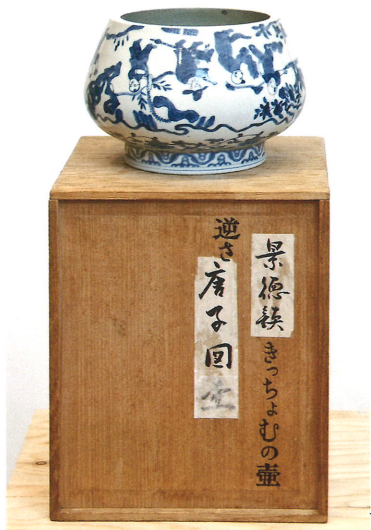 景徳鎮きっちょむの壺
逆さ唐子図